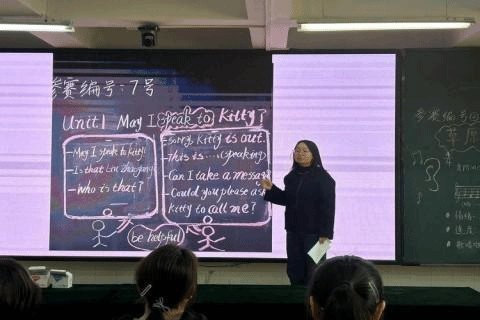 参赛编号:7号
Unit1 May I speak to Kitty?
-May I speak to Kitty?
-Is that
-Who is that?
-Sorry, Kitty is out.
This is....(speaking)
-Can I take a message
-Could you please ask
kitty to call me?
be helpful
参赛编号